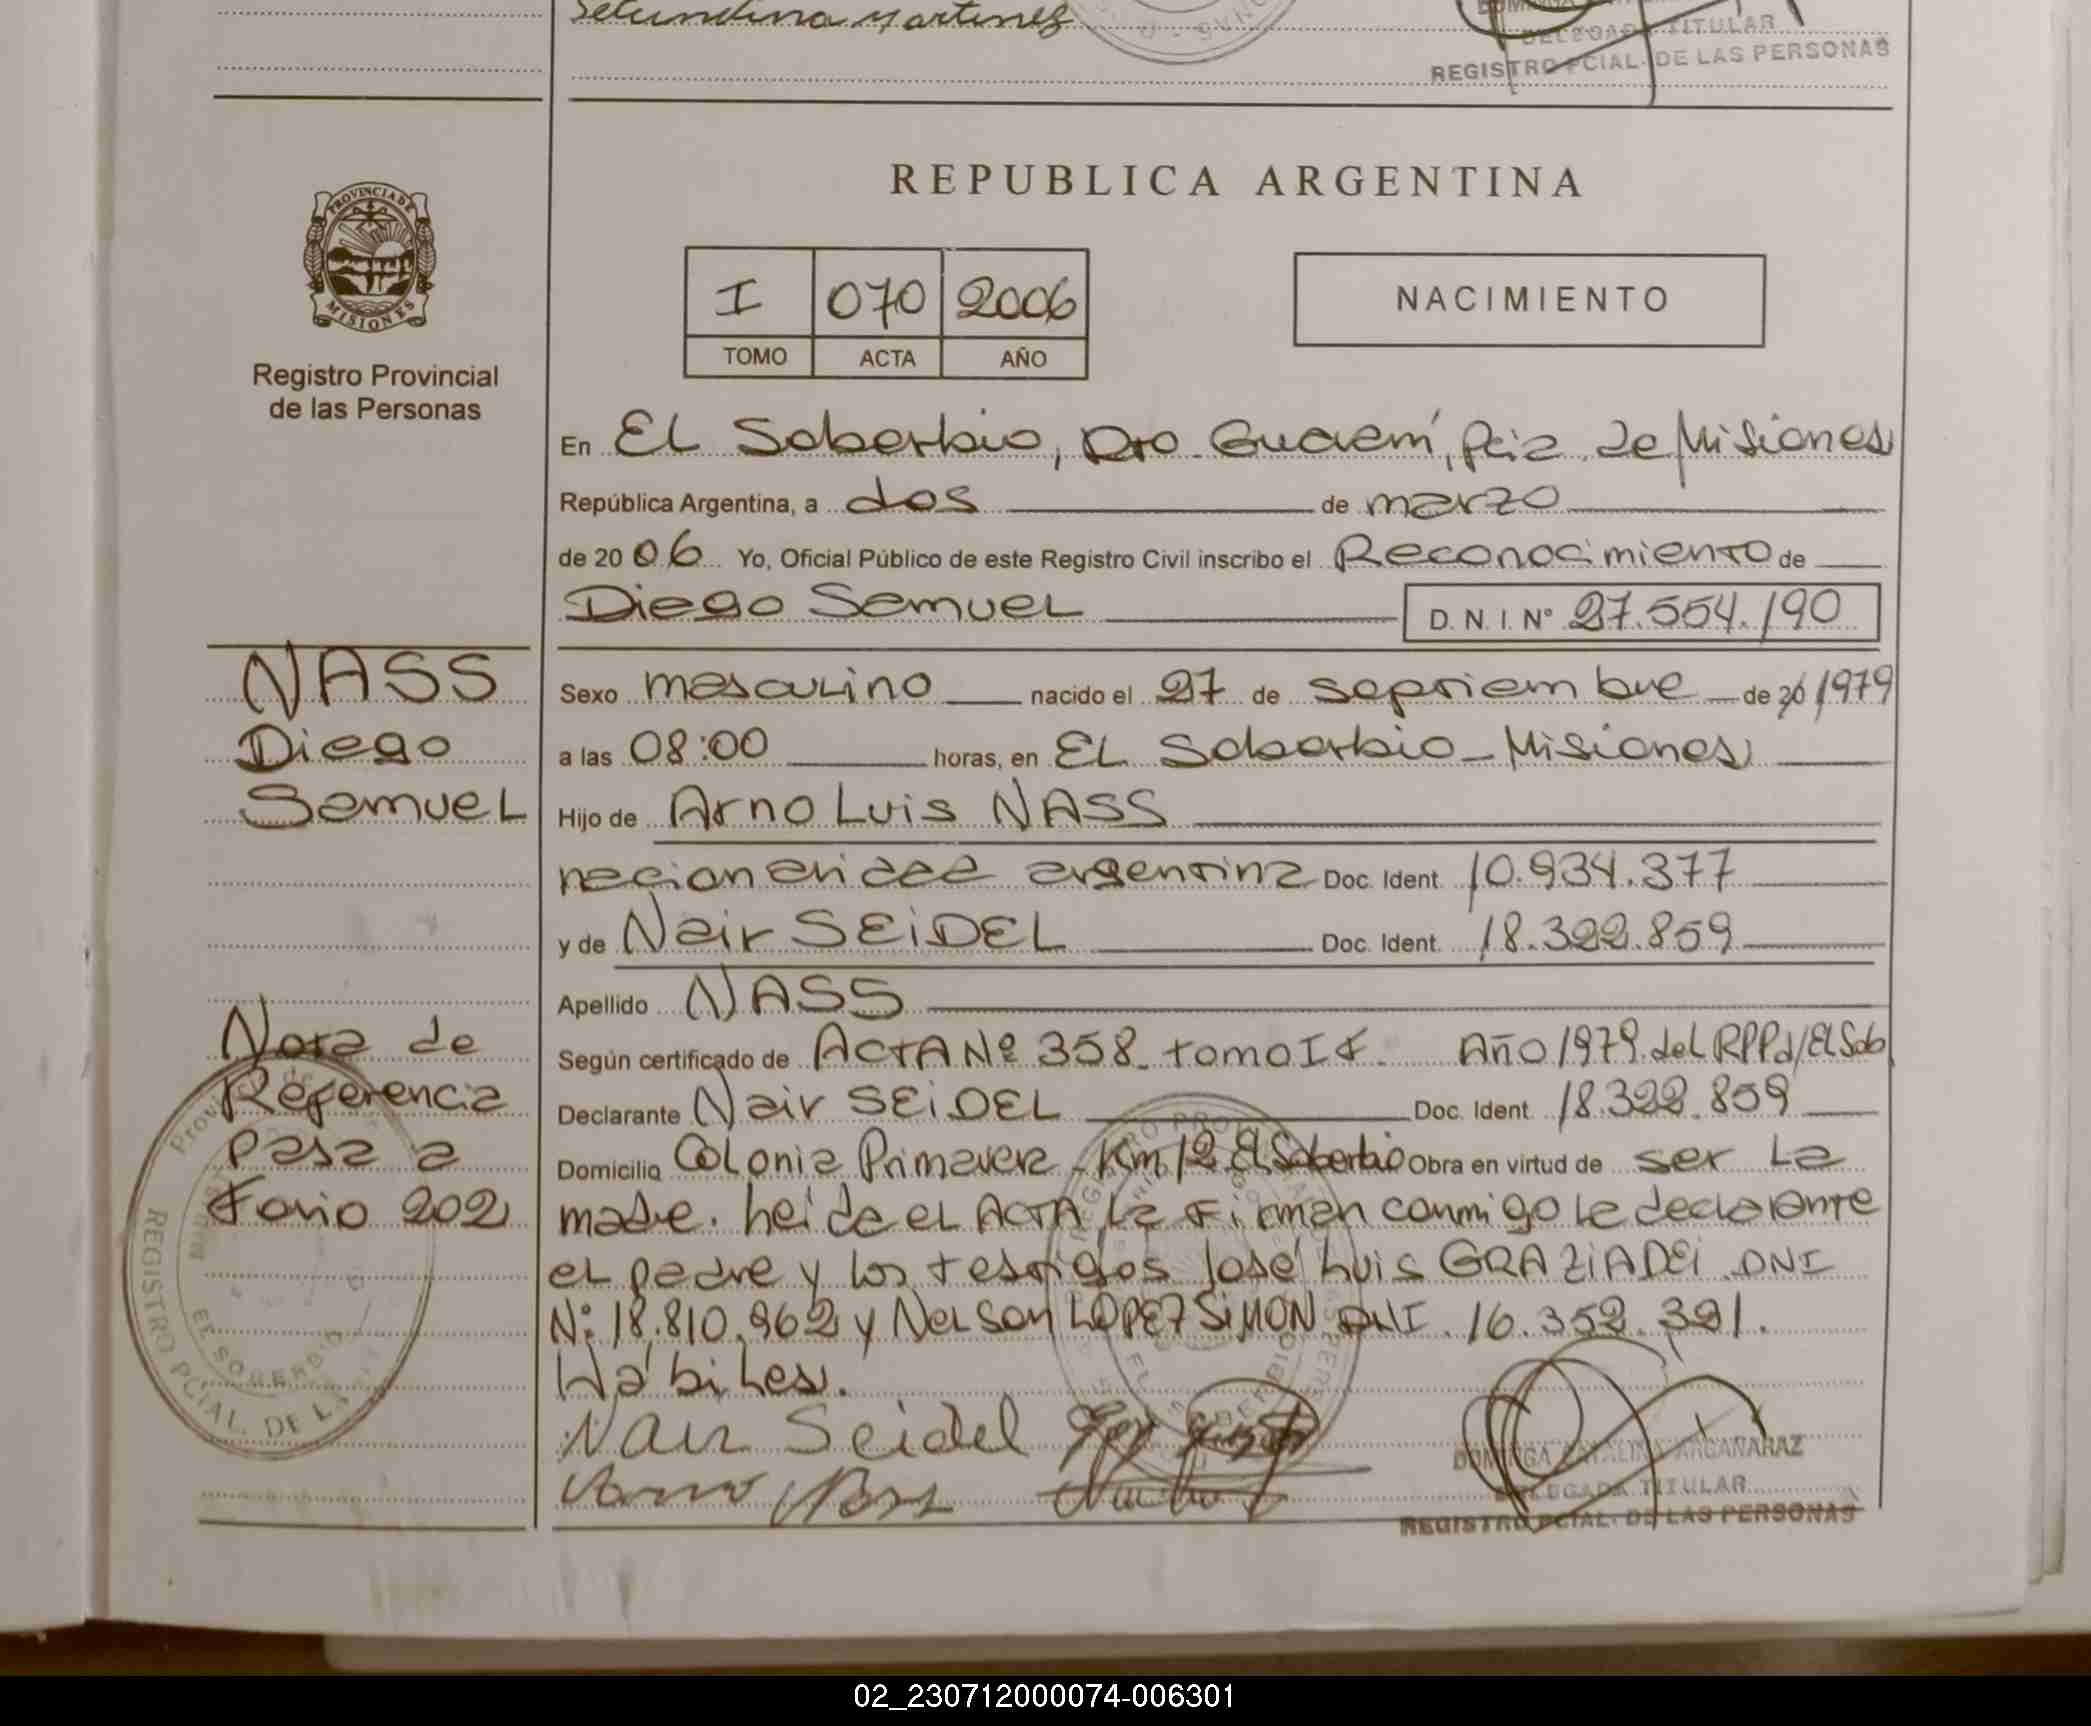 Secundina Martinez
DELEGADA TITULAR
REGISTRO PCIAL. DE LAS PERSONAS
PROVINCIA DE
MISIONES
Registro Provincial
de las Personas
REPUBLICA ARGENTINA
I 070 2006
TOMO ACTA AÑO
NACIMIENTO
En El Soberbio, Dto. Guaraní, Pcia. de Misiones
República Argentina, a dos de marzo
de 2006 Yo, Oficial Público de este Registro Civil inscribo el Reconocimiento de
Diego Samuel D.N.I. Nº 27.554.190
NASS
Diego
Samuel
Sexo masculino nacido el 27 de septiembre de 20 1979
a las 08:00 horas, en El Soberbio - Misiones
Hijo de Arno Luis NASS
nacionalidad argentina Doc. Ident. 10.934.377
y de Nair SEiDEL Doc. Ident. 18.322.859
Apellido NASS
Según certificado de ACTA Nº 358 tomo I F. Año 1979 del RPPd/El Sob
Declarante Nair SEiDEL Doc. Ident. 18.322.859
Domicilio Colonia Primavera - Km 12 El Soberbio Obra en virtud de ser la
madre. Leída el ACTA la firman conmigo la declarante
el padre y los testigos José Luis GRAZiADEi DNI
Nº 18.810.962 y Nelson LOPEZ SiMON DNI. 16.352.391.
Hábiles.
Nota de
Referencia
pasa a
Folio 202
REGISTRO PCIAL. DE LA
EL SOBERBIO
Nair Seidel
Arno Nass
DOMINGA CATALINA ARGAÑARAZ
DELEGADA TITULAR
REGISTRO PCIAL. DE LAS PERSONAS
02_230712000074-006301